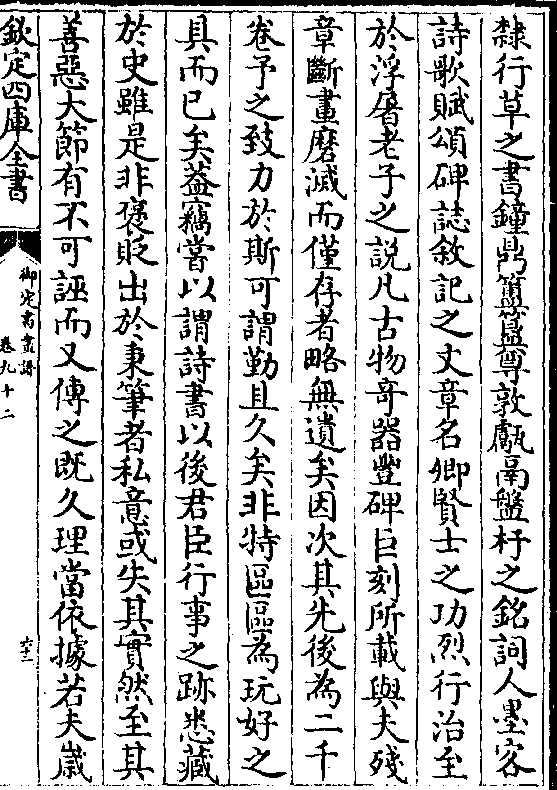 隸行草之書鐘鼎簠簋尊敦甗鬲盤杅之銘詞人墨客
詩歌賦頌碑誌敘記之文章名卿賢士之功烈行治至
於浮屠老子之說凡古物奇器豐碑巨刻所載與夫殘
章斷畫磨滅而僅存者略無遺矣因次其先後為二千
卷予之致力於斯可謂勤且久矣非特區區為玩好之
具而已矣葢竊嘗以謂詩書以後君臣行事之跡悉藏
於史雖是非褒貶出於秉筆者私意或失其實然至其
善惡大節有不可誣而又傳之既久理當依據若夫歲
欽定四庫全書
御定書畫譜
卷九十二